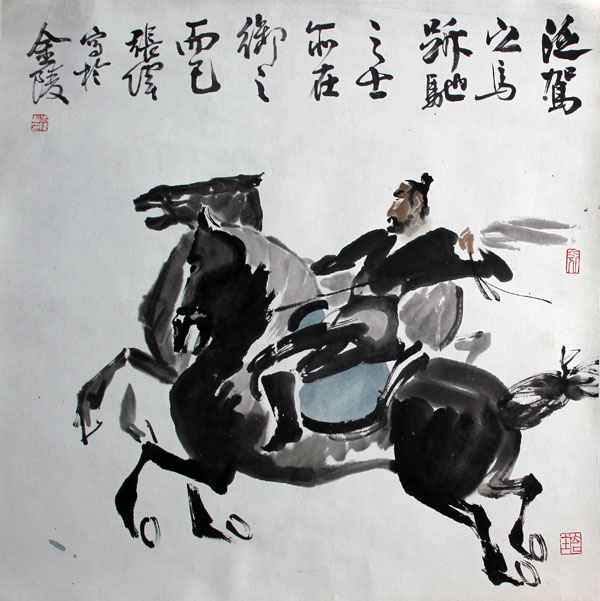 泛駕
之馬
跅馳
之士
亦在
御之
而已
張
寫於
金陵